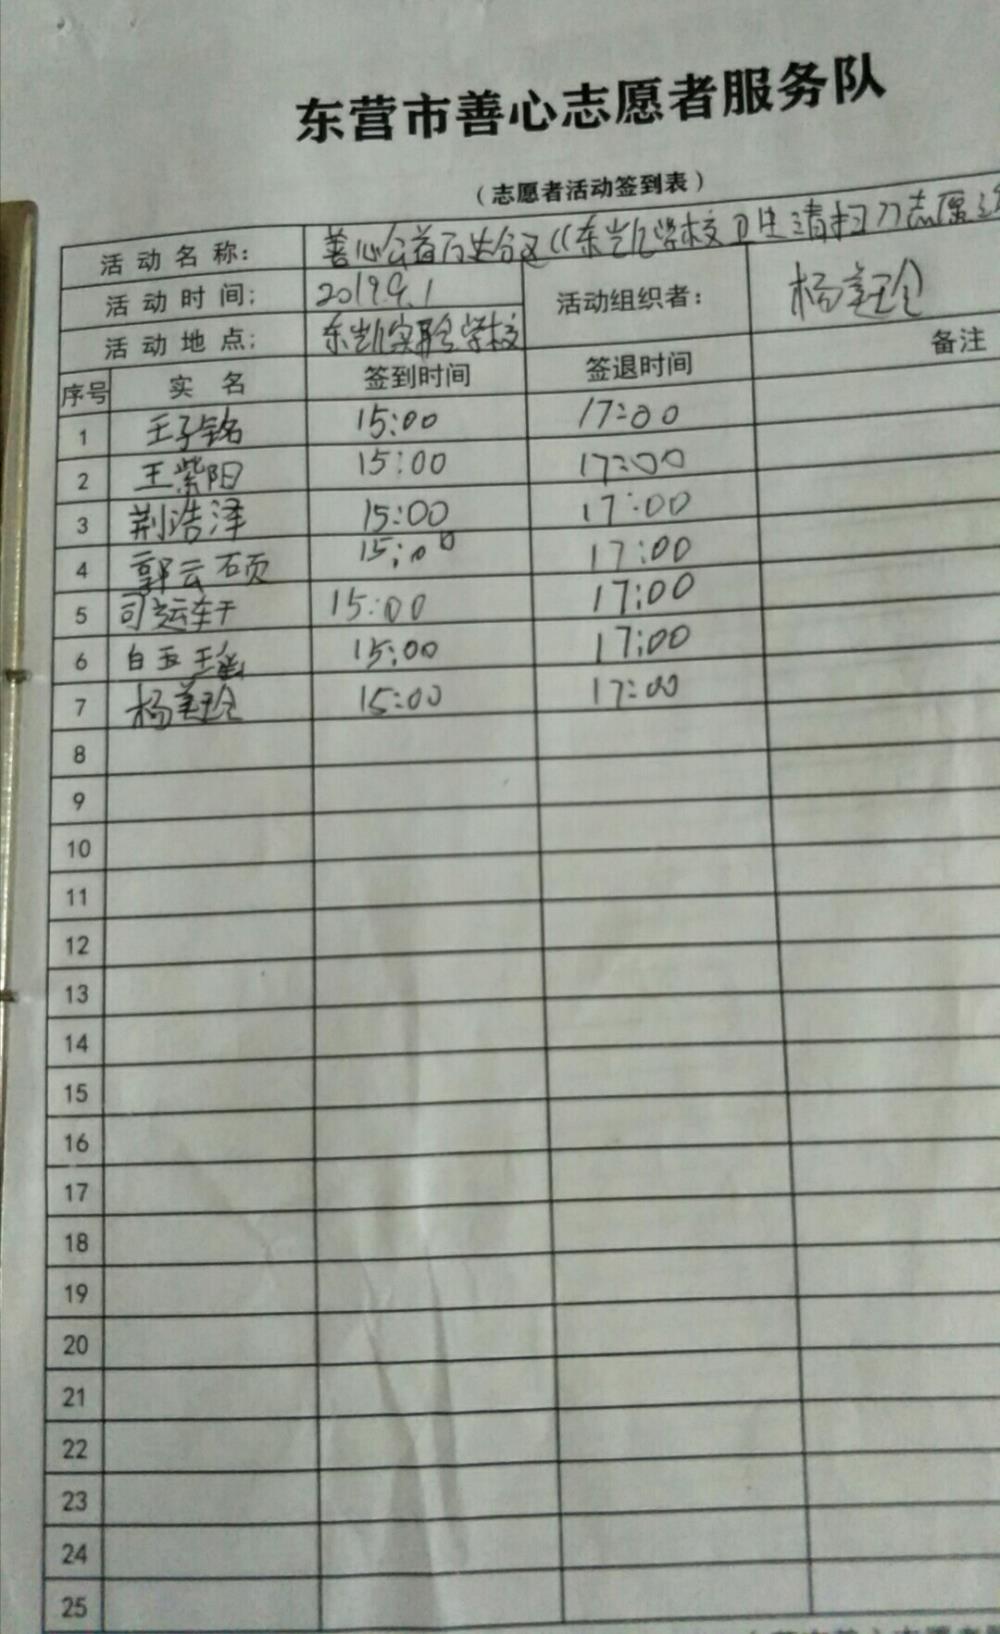 东营市善心志愿者服务队
（志愿者活动签到表）
活动名称： 善心公益 《东凯学校卫生清扫》志愿
活动时间： 2019.9.1 活动组织者： 杨美玲
活动地点： 东凯实验学校
序号 实名 签到时间 签退时间 备注
1 王子铭 15:00 17:00
2 王紫阳 15:00 17:00
3 荆浩泽 15:00 17:00
4 郭云硕 15:00 17:00
5 司运轩 15:00 17:00
6 白玉瑶 15:00 17:00
7 杨美玲 15:00 17:00
8
9
10
11
12
13
14
15
16
17
18
19
20
21
22
23
24
25